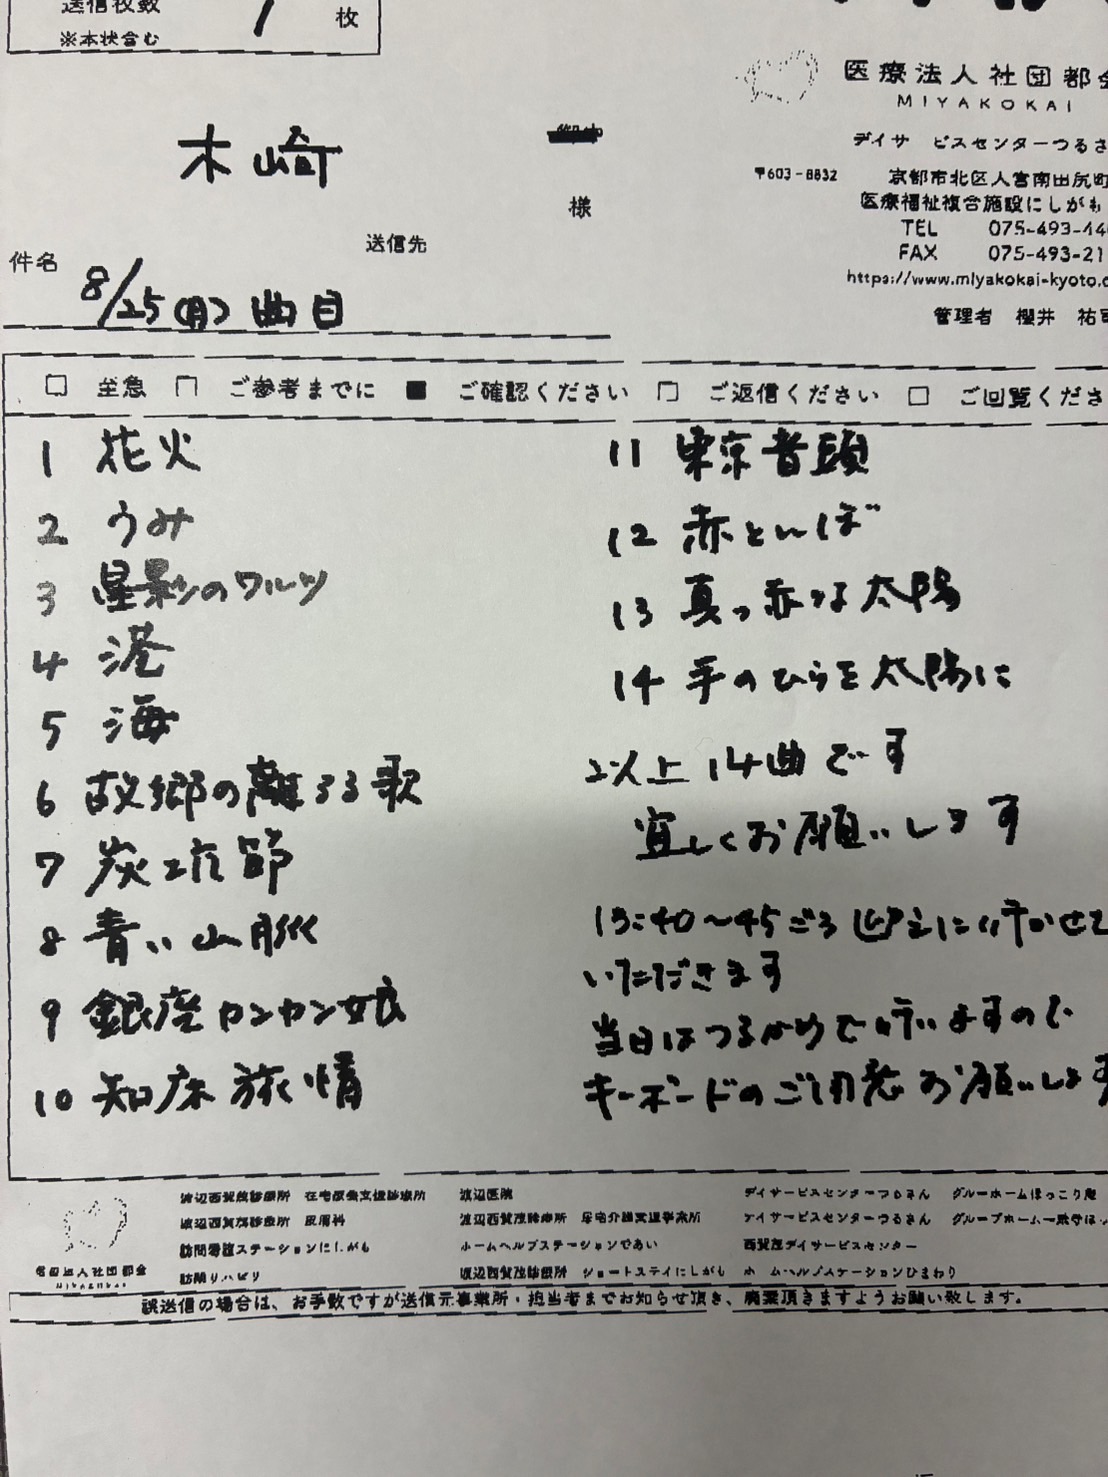 送信枚数 1 枚
※本状含む
医療法人社団都会
MIYAKOKAI
木崎
様
デイサービスセンターつるさ
〒603-8832 京都市北区大宮南田尻町
医療福祉複合施設にしがも
TEL 075-493-44
FAX 075-493-21
https://www.miyakokai-kyoto.c
管理者 櫻井 祐司
送信先
件名 8/25(月) 曲目
□ 至急 □ ご参考までに ■ ご確認ください □ ご返信ください □ ご回覧くださ
1 花火
2 うみ
3 星影のワルツ
4 港
5 海
6 故郷の離るる歌
7 炭坑節
8 青い山脈
9 銀座カンカン娘
10 知床旅情
11 東京音頭
12 赤とんぼ
13 真っ赤な太陽
14 手のひらを太陽に
以上14曲です
宜しくお願いします
13:40〜45ごろ迎えに行かせて
いただきます
当日はつるかめで行いますので
キーボードのご用意お願いします
渡辺西賀茂診療所 在宅療養支援診療所 渡辺医院 デイサービスセンターつるさん グループホームほっこり庵
渡辺西賀茂診療所 皮膚科 渡辺西賀茂診療所 居宅介護支援事業所 デイサービスセンターつるさん
訪問看護ステーションにしがも ホームヘルプステーションであい 西賀茂デイサービスセンター
訪問リハビリ 渡辺西賀茂診療所 ショートステイにしがも ホームヘルプステーションひまわり
医療法人社団都会
MIYAKOKAI
誤送信の場合は、お手数ですが送信元事業所・担当者までお知らせ頂き、廃棄頂きますようお願い致します。